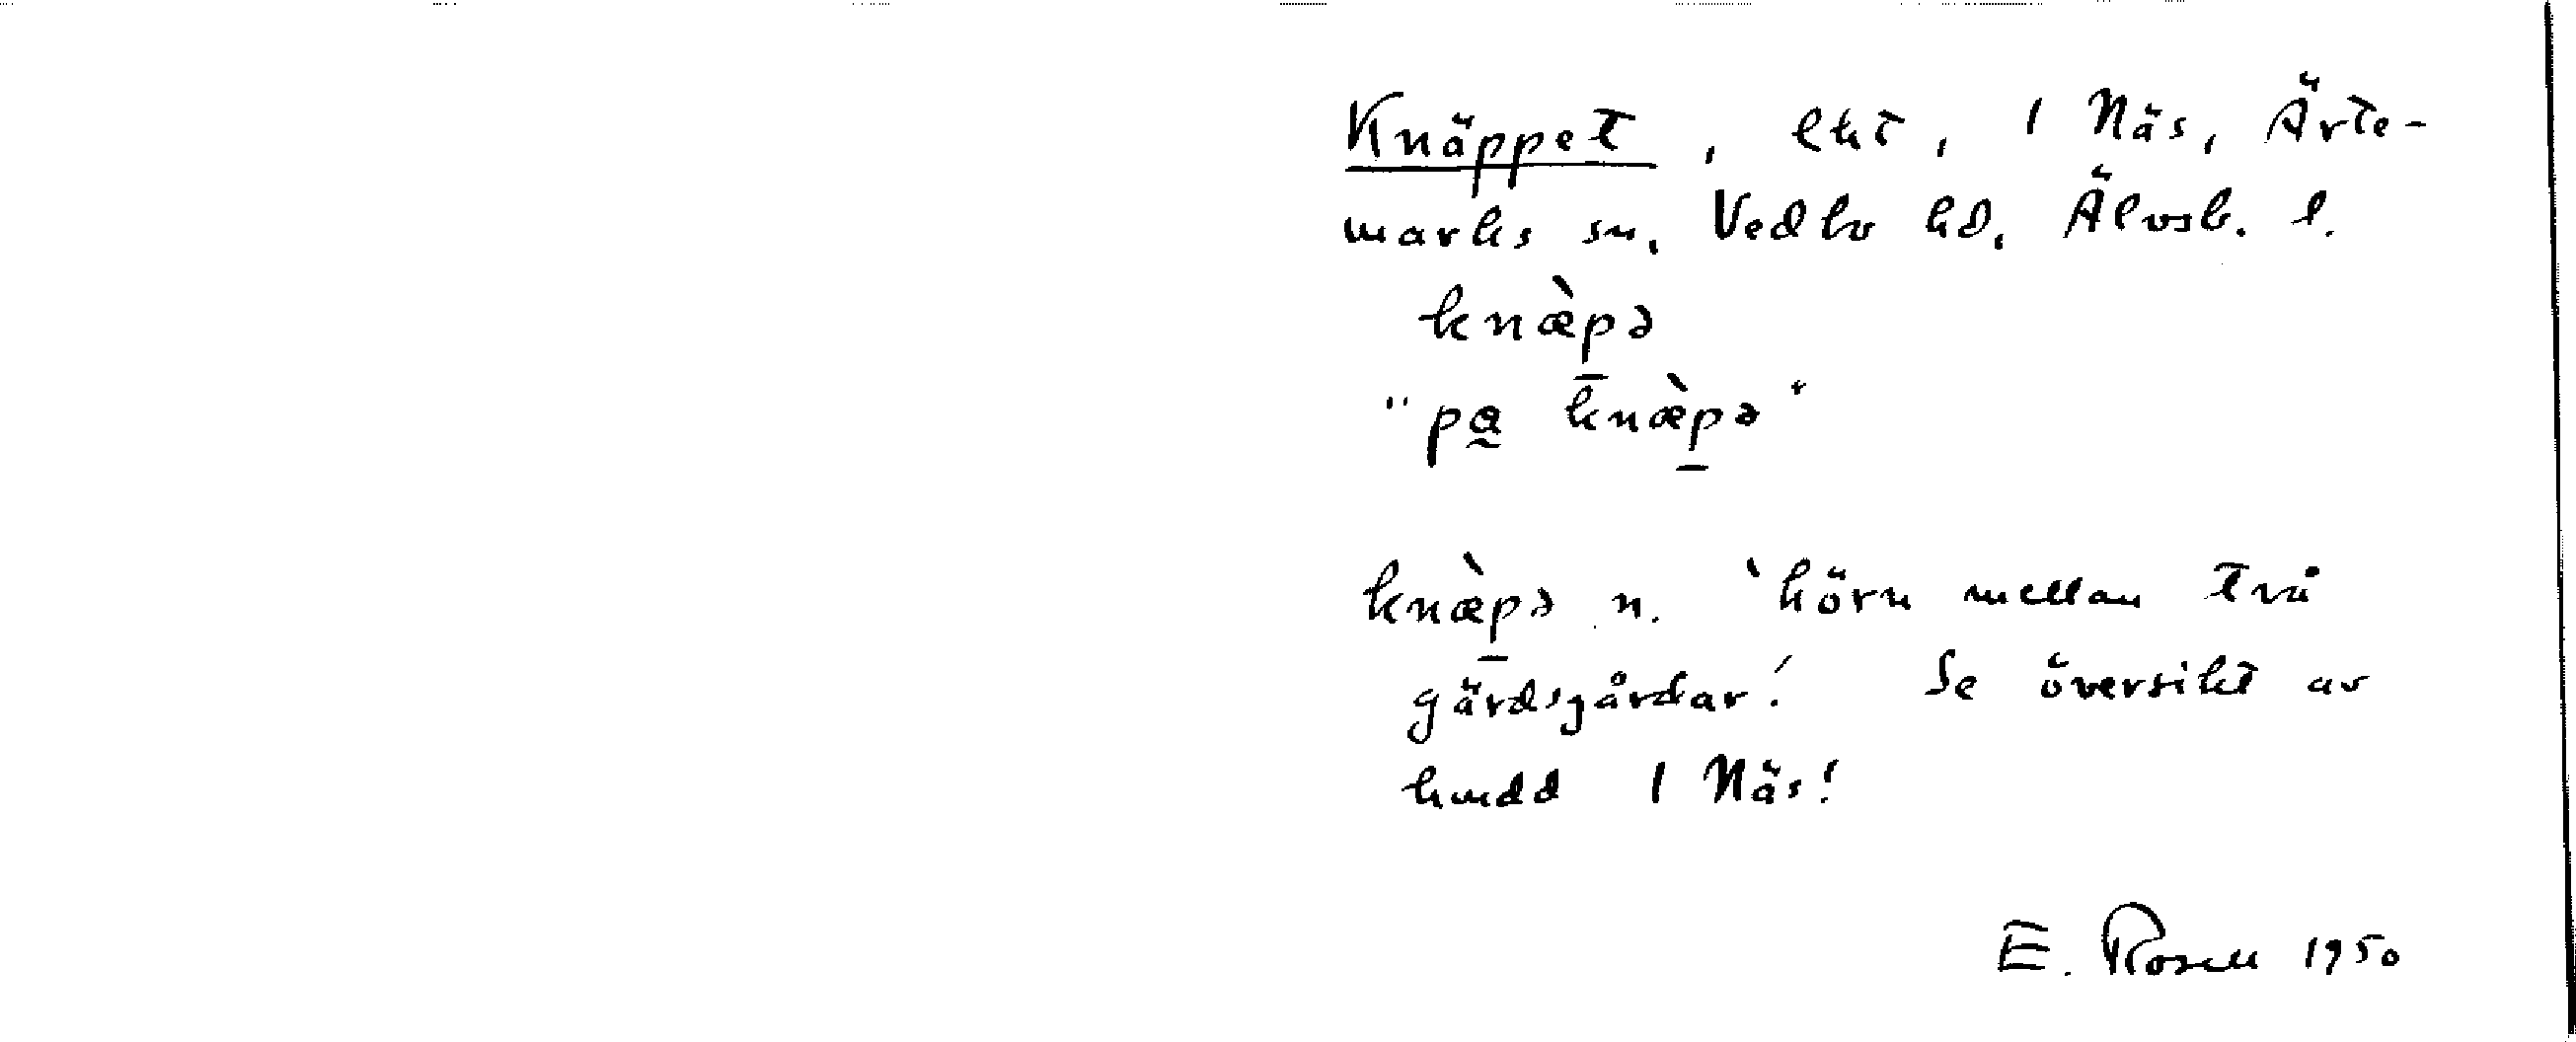 Knäppet, lht, 1 Näs, Ärte-
marks sn. Vedbo hd. Älvsb. l.
knæ̀p̱ə
"pa̰ knæ̀p̱ə"
knæ̀p̱ə n. 'hörn mellan två
gärdsgårdar'. Se översikt av
hmdd 1 Näs!
E. Rosell 1950